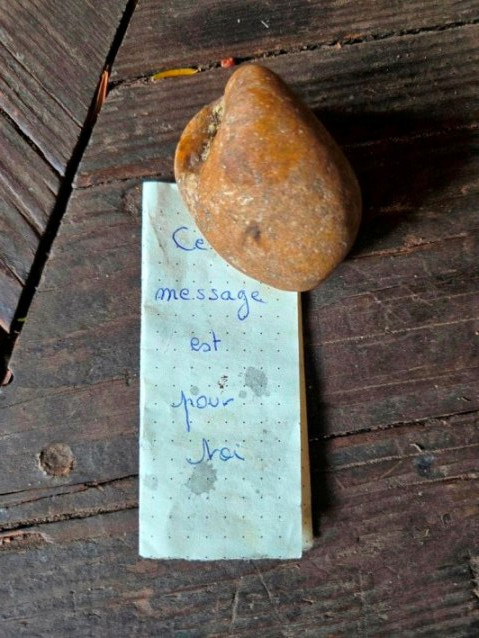 Ce
message
est
pour
Noi